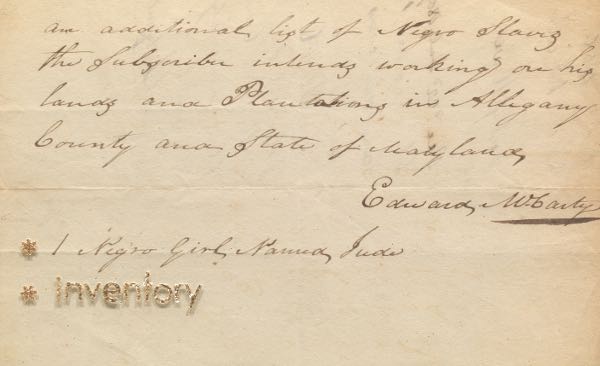 an additional list of Negro Slaves
the Subscriber intends working on his
lands and Plantations in Allegany
County and State of Maryland,
Edward McCarty
* 1 Negro Girl Named Jude
* Inventory